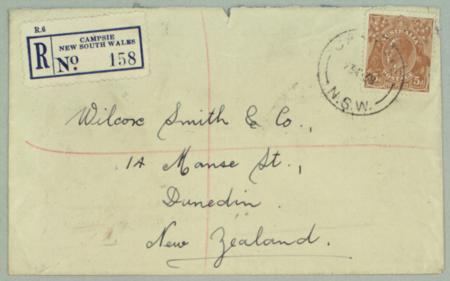 R.6
CAMPSIE
NEW SOUTH WALES
R No 158
AUSTRALIA
5D
N.S.W.
Wilcox Smith & Co.,
14 Manse St.,
Dunedin.
New Zealand.